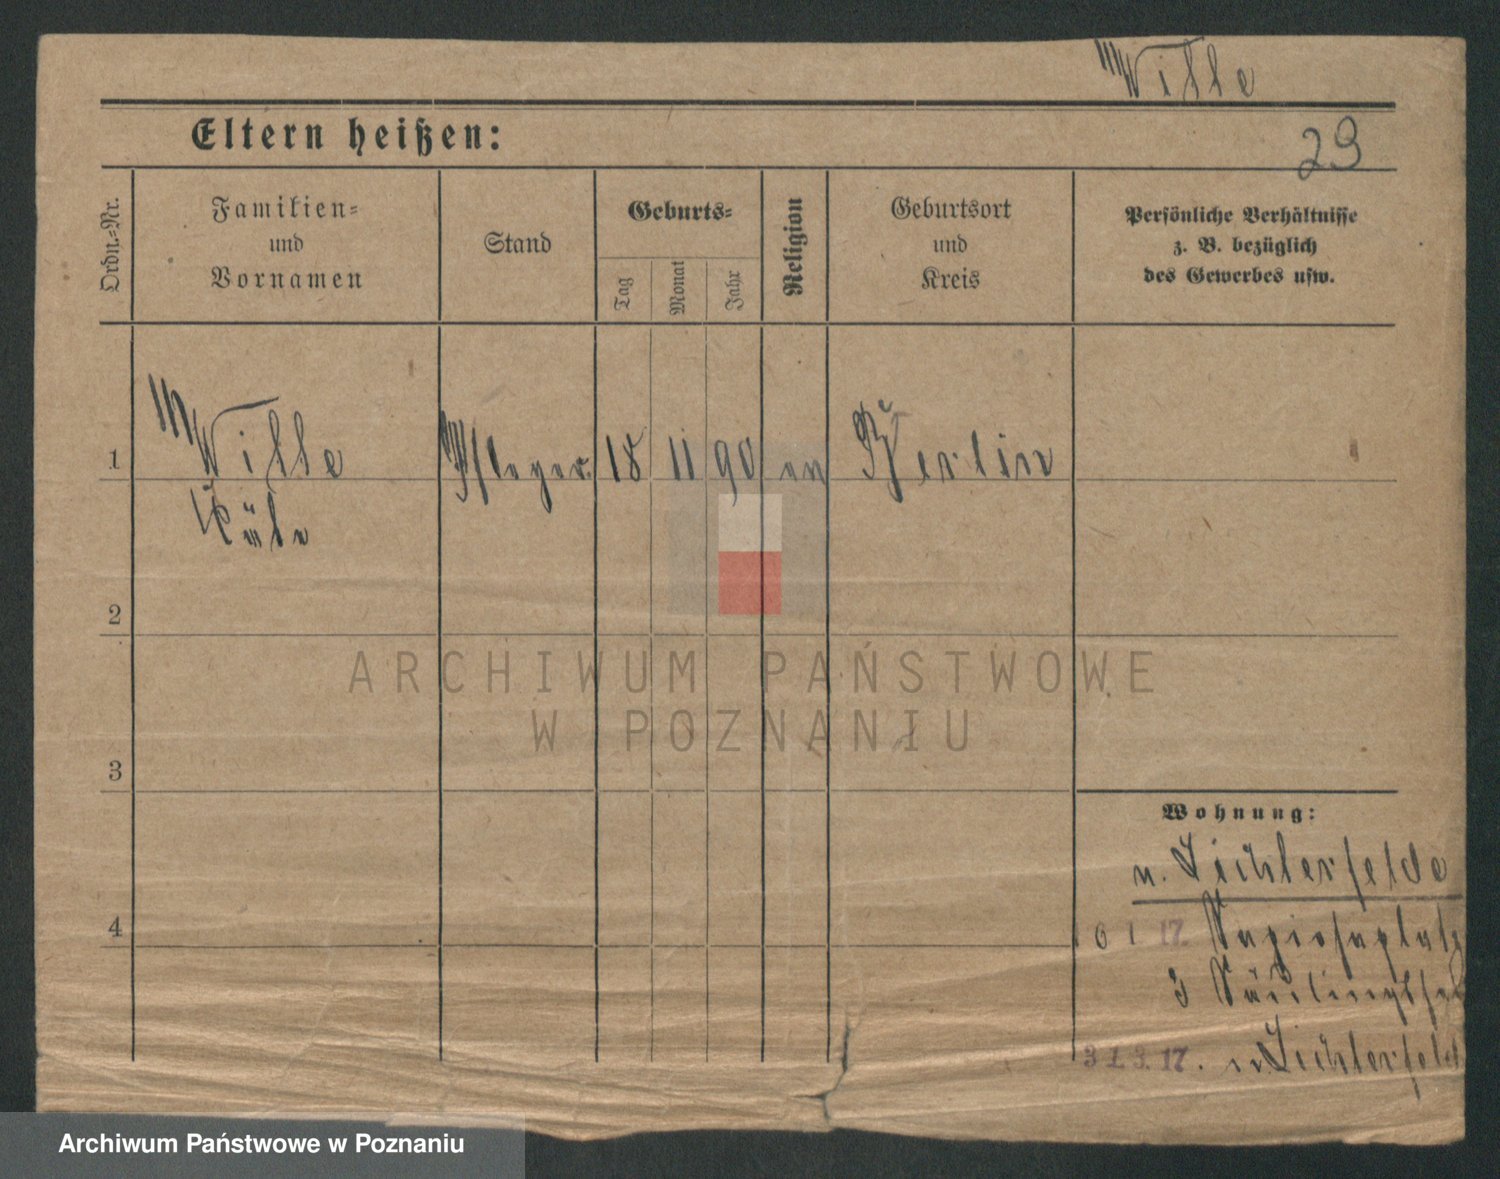 Wille
Eltern heißen:
29
Ordn.=Nr.
Familien=
und
Vornamen
Stand
Geburts=
Tag
Monat
Jahr
Religion
Geburtsort
und
Kreis
Persönliche Verhältnisse
z. B. bezüglich
des Gewerbes usw.
1
Wille
Pfleger.
18
11
90
ev
Berlin
Käte
2
3
4
Wohnung:
n. Lichterfelde
6 1 17.
3
31.3.17. n. Lichterfeld
ARCHIWUM PAŃSTWOWE
W POZNANIU
Archiwum Państwowe w Poznaniu